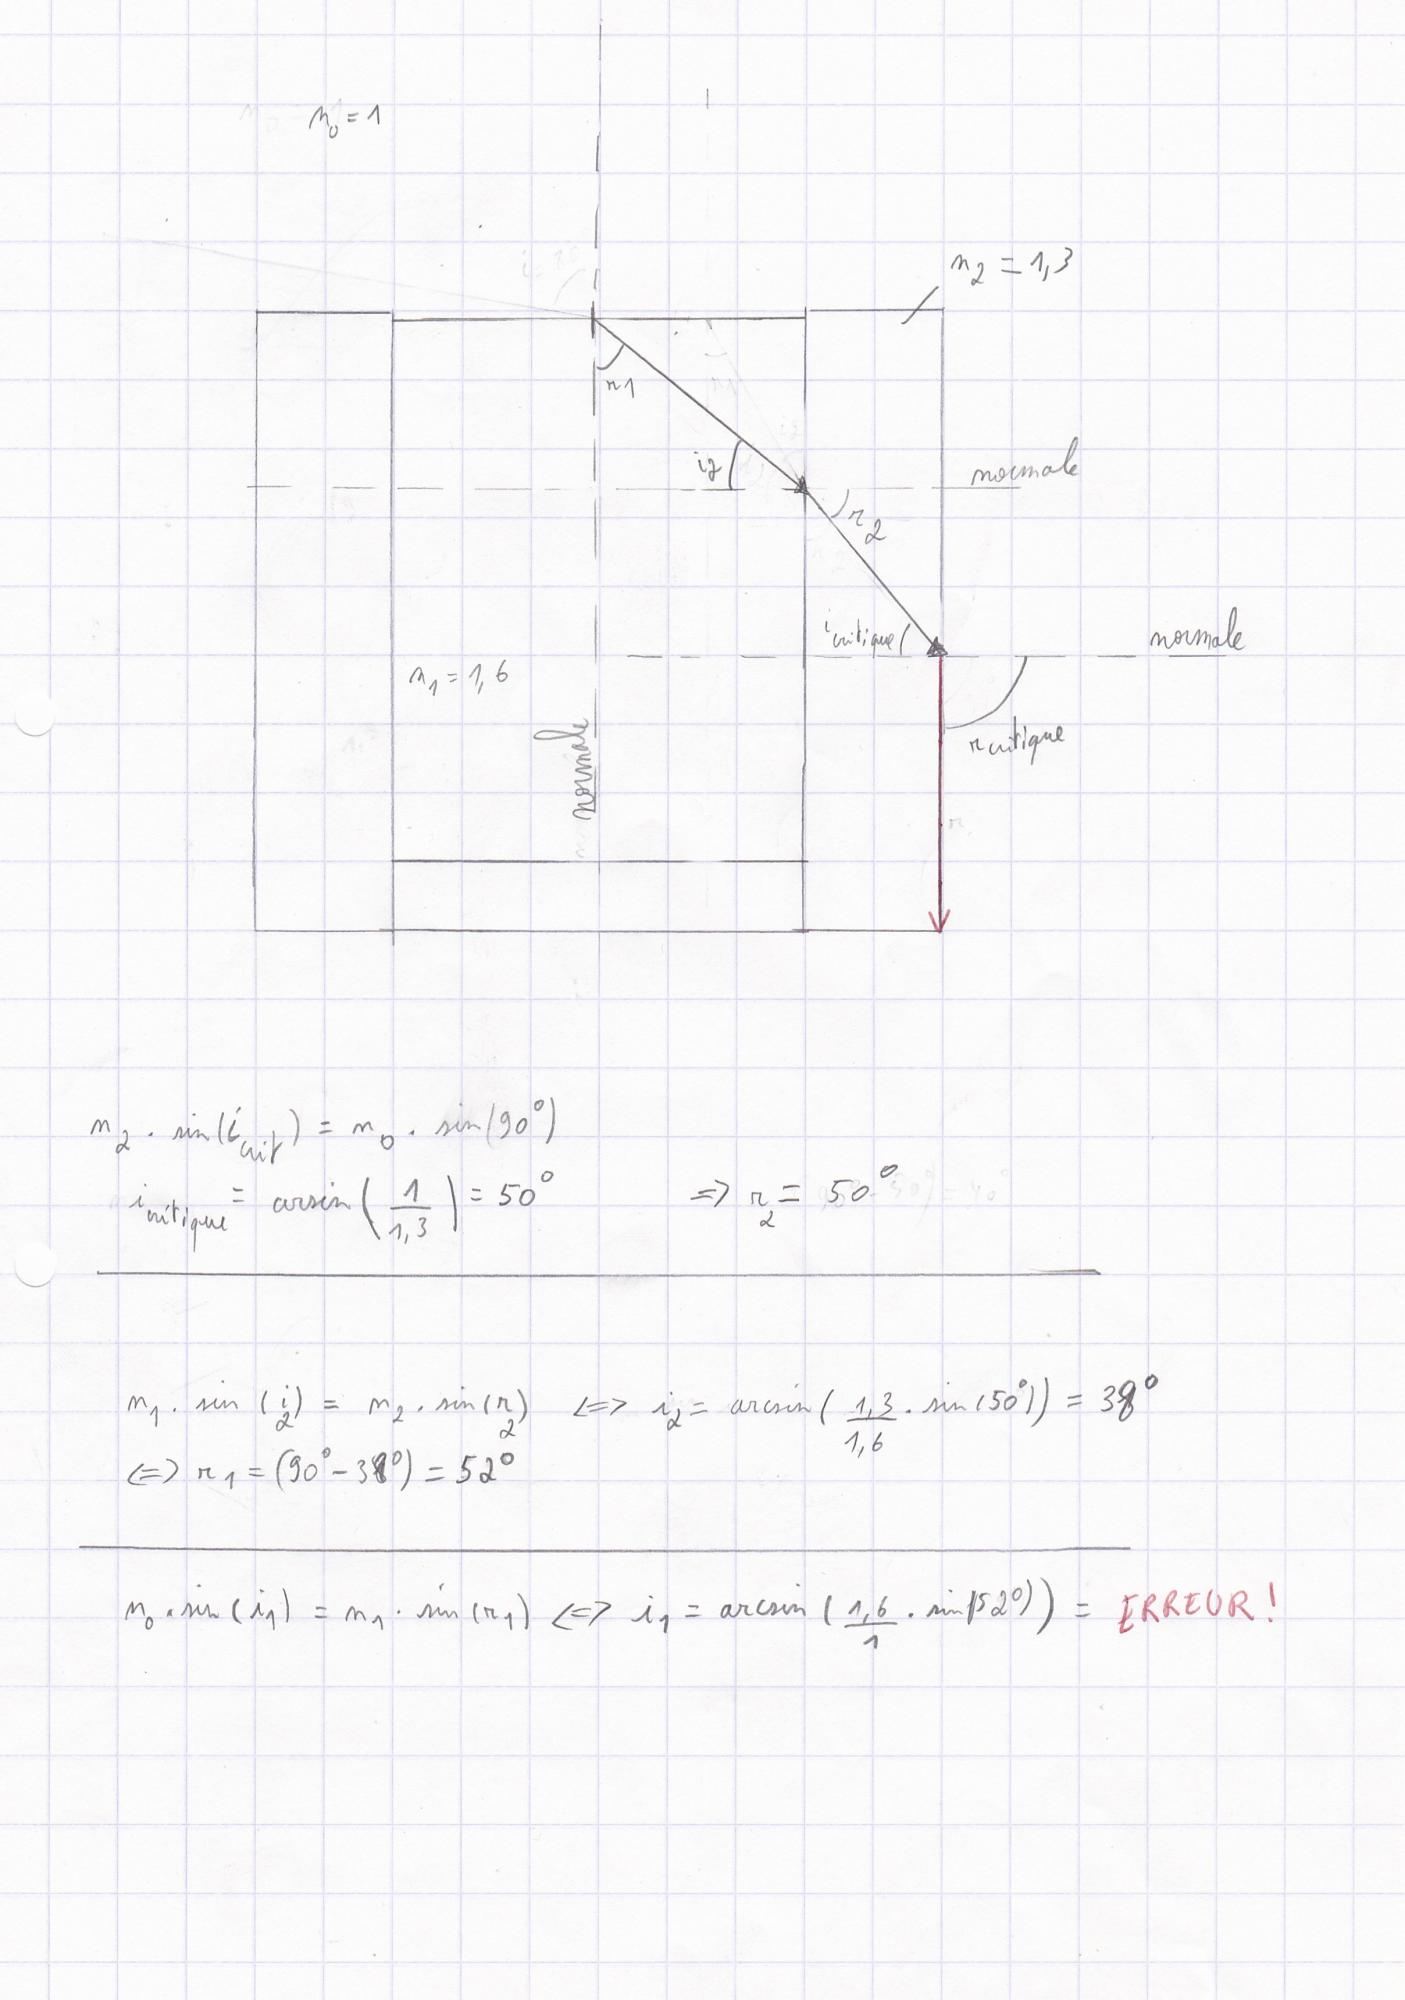 n₀ = 1
n₂ = 1,3
r1
i2
normale
r₂
i critique
normale
n₁ = 1,6
r critique
normale
n₂ . sin(i_crit) = n₀ . sin(90°)
i critique = arcsin(1/1,3) = 50° => r₂ = 50°
n₁ . sin(i₂) = n₂ . sin(r₂) <=> i₂ = arcsin(1,3/1,6 . sin(50°)) = 38°
<=> r₁ = (90° - 38°) = 52°
n₀ . sin(i₁) = n₁ . sin(r₁) <=> i₁ = arcsin(1,6/1 . sin(52°)) = ERREUR !